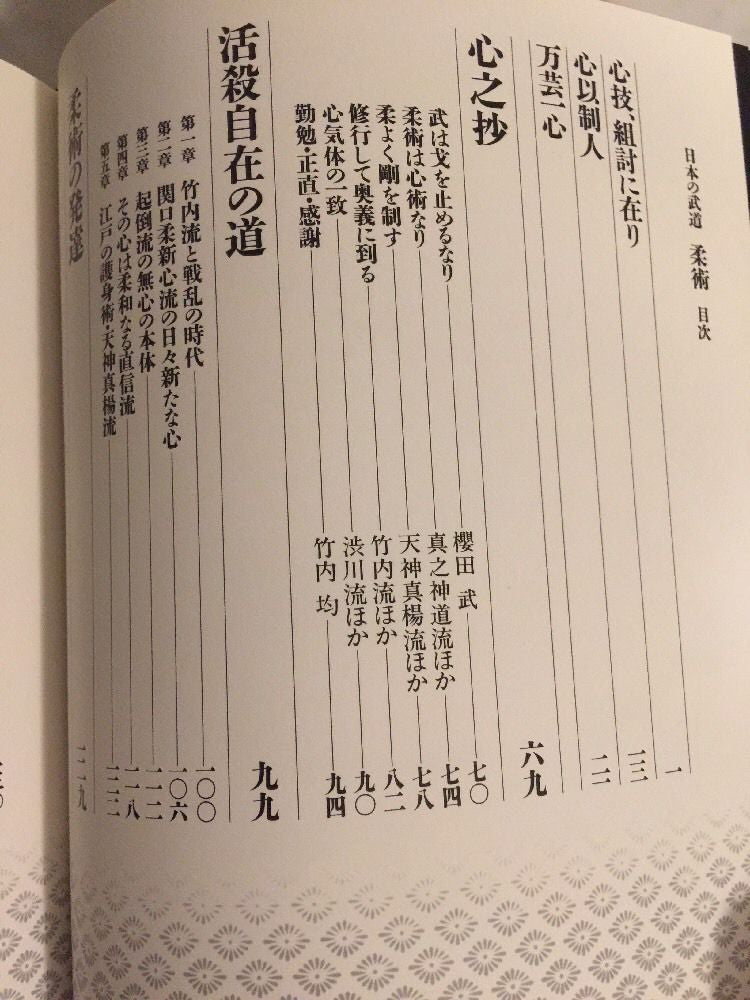 日本の武道 柔術 目次
心技、組討に在り 一
心以制人 一三
万芸一心 二二
心之抄 六九
武は戈を止めるなり 櫻田 武 七〇
柔術は心術なり 真之神道流ほか 七四
柔よく剛を制す 天神真楊流ほか 七八
修行して奥義に到る 竹内流ほか 八二
心気体の一致 渋川流ほか 九〇
勤勉・正直・感謝 竹内 均 九四
活殺自在の道 九九
第一章 竹内流と戦乱の時代 一〇〇
第二章 関口柔新心流の日々新たな心 一〇六
第三章 起倒流の無心の本体 一一二
第四章 その心は柔和なる直信流 一一八
第五章 江戸の護身術・天神真楊流 一二二
柔術の発達 一二九